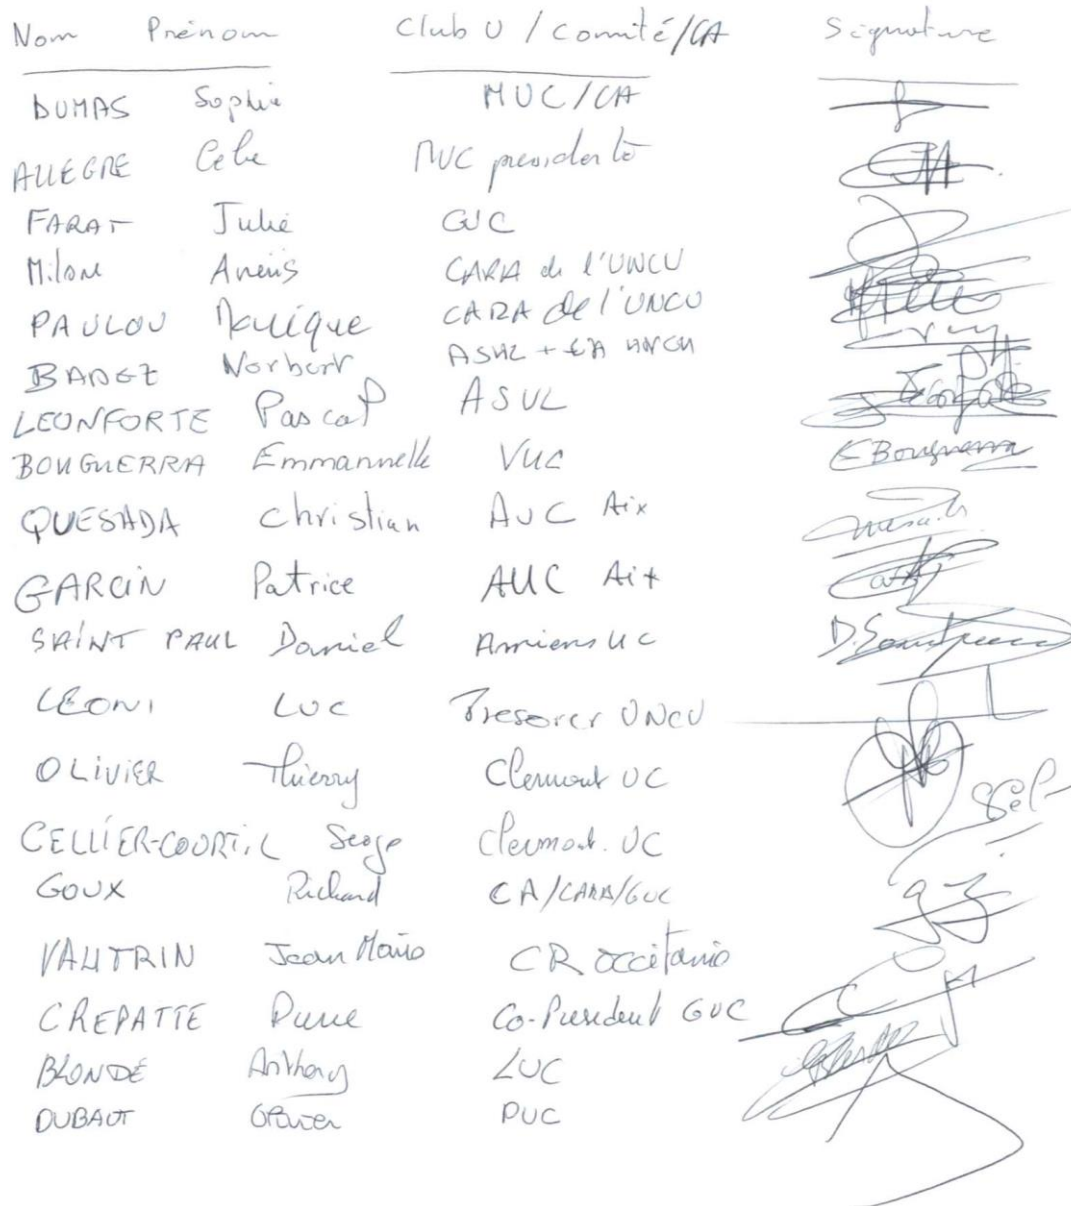 Nom Prénom Club U / Comité/CA Signature
DUMAS Sophie MUC/CA
ALLEGRE MUC presidente
FARAT Julie GUC
Milone CARA de l'UNCU
PAULOU CARA de l'UNCU
BADEZ Norbert ASUL +
LEONFORTE Pascal ASUL
BOUGUERRA Emmannuelle VUC E Bouguerra
QUESADA Christian AUC Aix
GARCIN Patrice AUC Aix
SAINT PAUL Daniel Amiens UC
LEONI LUC Tresorer UNCU
OLIVIER Thierry Clermont UC
CELLIER-COURTIL Serge Clermont. UC
GOUX Richard CA/CARA/GUC
VAUTRIN Jean Marie CR Occitanie
CREPATTE Co-President GUC
BLONDE Anthony LUC
DUBAUT Olivier PUC